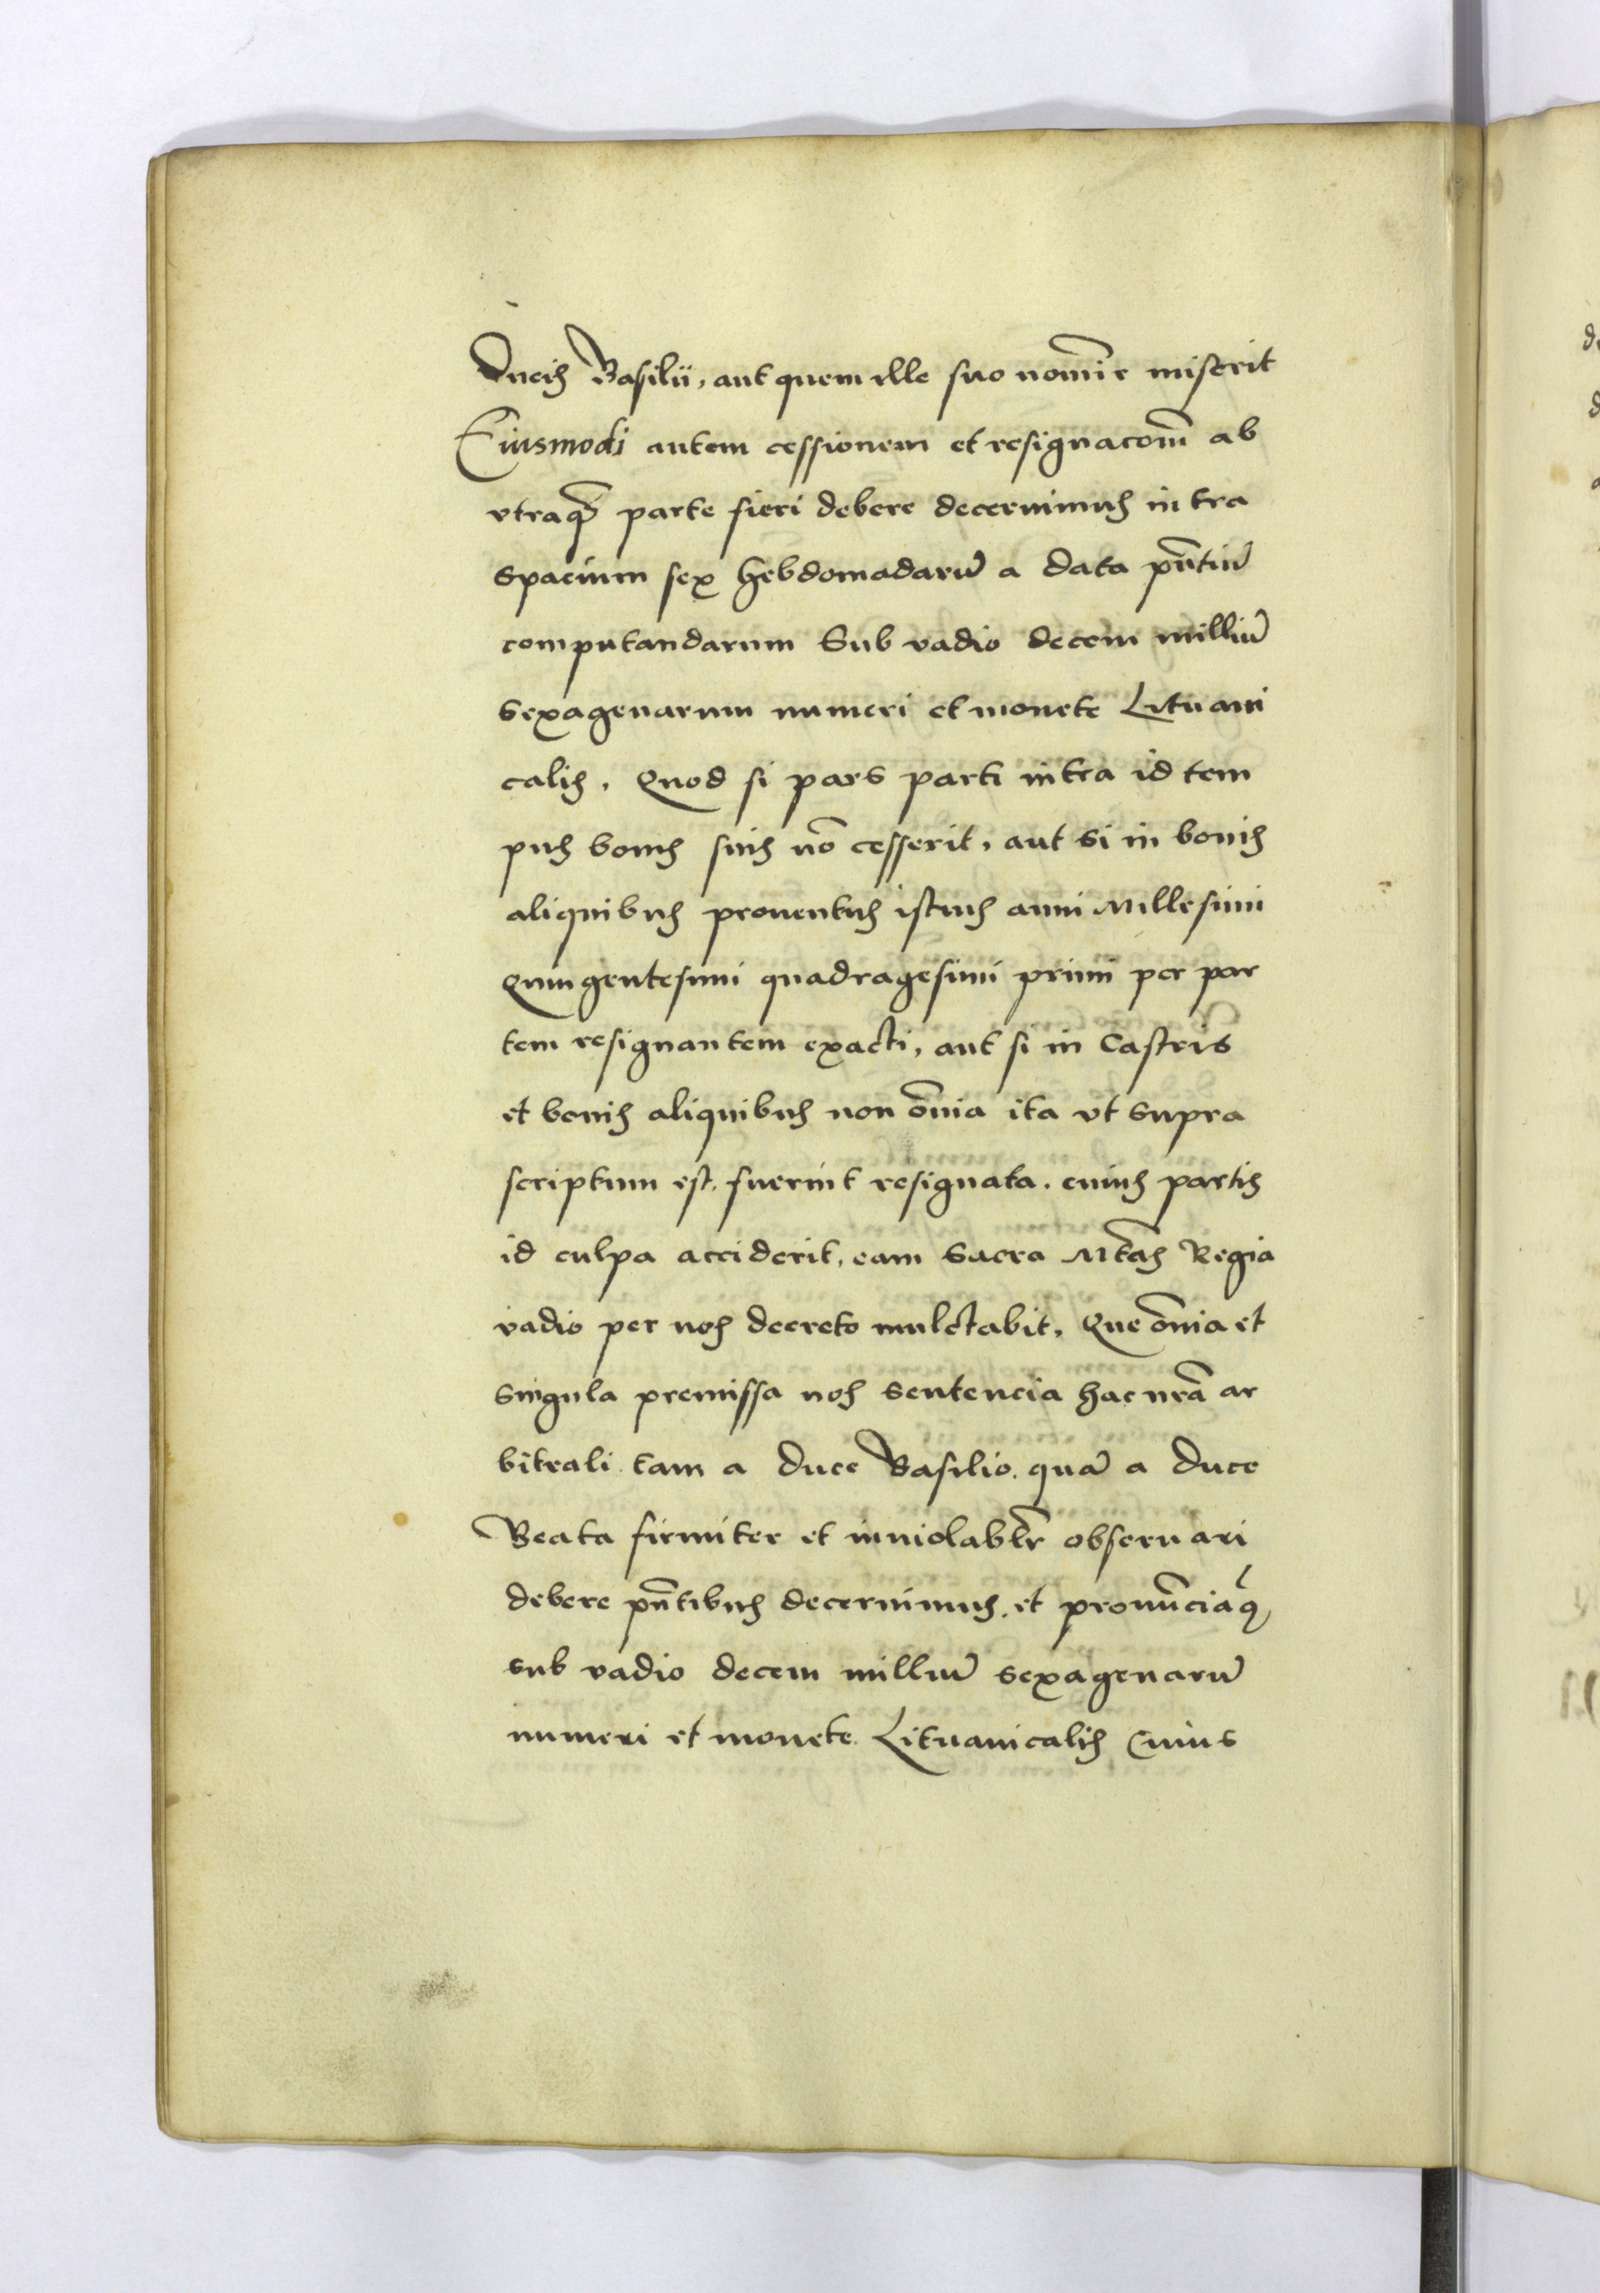 Ducis Basilii, aut quem ille suo nomī̄e miserit
Eiusmodi autem cessionem et resignacōm̄ ab
vtraq̄ parte fieri debere decernimus intra
spacium sex hebdomadarū a data pn̄tiū
computandarum Sub vadio decem milliū
sexagenarum numeri et monete Lituani
calis. Quod si pars parti intra id tem
pus bonis suis nō cesserit, aut si in bonis
aliquibus prouentus istius anni Millesimi
Quingentesimi quadragesimi primi per par
tem resignantem exacti, aut si in Castris
et bonis aliquibus non ōnia ita vt supra
scriptum est. fuerint resignata. cuius partis
id culpa acciderit, eam Sacra Mt̄as Regia
vadio per nos decreto mulctabit, Que ōnia et
singula premissa nos sentencia hac nrā ar
bitrali tam a duce Basilio. quā a duce
Beata firmiter et inuiolabl̄r obseruari
debere pn̄tibus decernimus. et pronūciāꝯ
sub vadio decem milliū sexagenarū
numeri et monete Lituanicalis Cuius